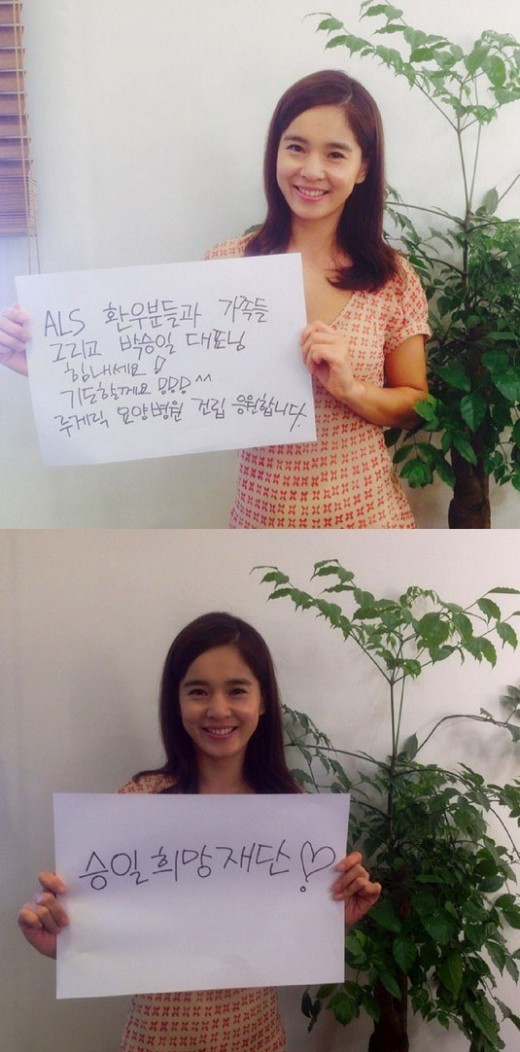 ALS 환우분들과 가족들
그리고 박승일 대표님
힘내세요!
기도할께요 ^^
루게릭 요양병원 건립 응원합니다.
승일희망재단!♡